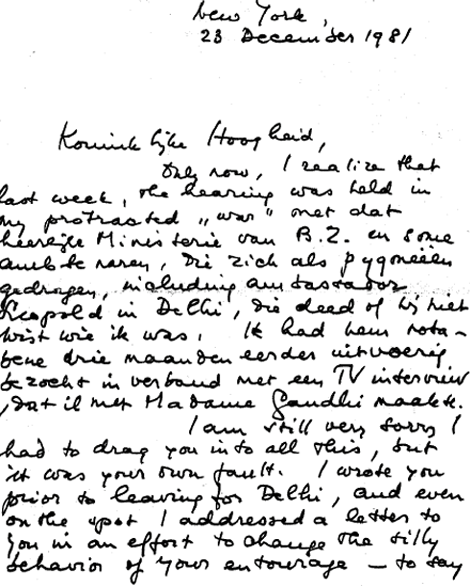 New York,
23 December 1981
Koninklijke Hoogheid,
Only now, I realize that
last week, the hearing was held in
my protracted „war" met dat
heerlijke Ministerie van B.Z. en some
ambtenaren, die zich als pygmeëen
gedragen, including ambassador
Leopold in Delhi, die deed of hij niet
wist wie ik was. Ik had hem nota-
bene drie maanden eerder uitvoerig
bezocht in verband met een TV interview
, dat ik met Madame Gandhi maakte.
I am still very sorry I
had to drag you into all this, but
it was your own fault. I wrote you
prior to leaving for Delhi, and even
on the spot I addressed a letter to
you in an effort to change the silly
behavior of your entourage – to say